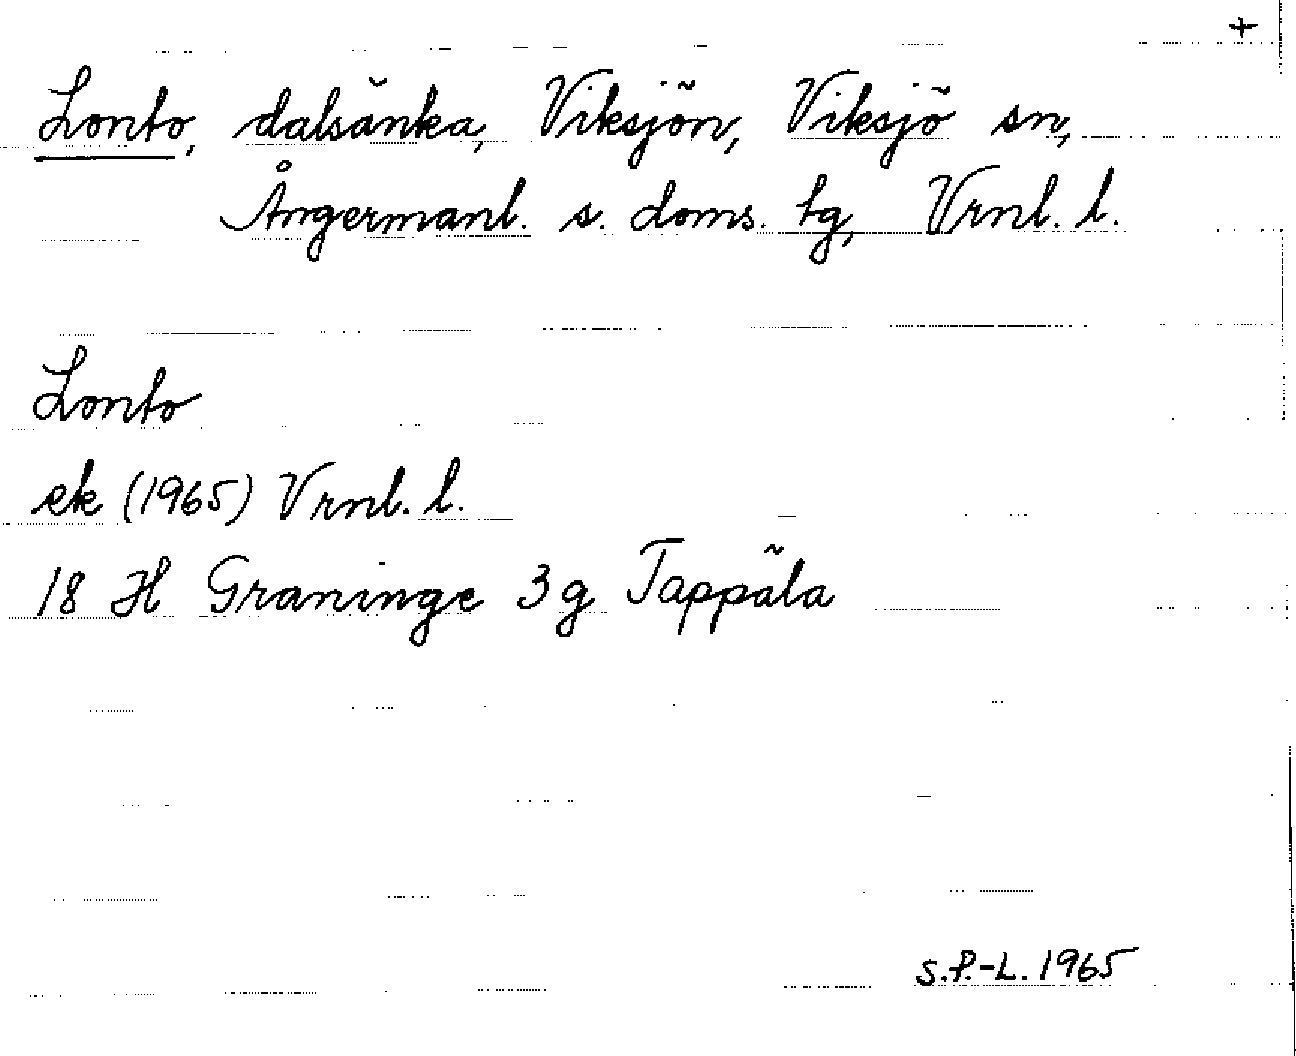 +
Lonto, dalsänka, Viksjön, Viksjö sn,
Ångermanl. s. doms. tg, Vrnl. l.
Lonto
ek (1965) Vrnl. l.
18 H Graninge 3g Tappäla
S.P.-L. 1965